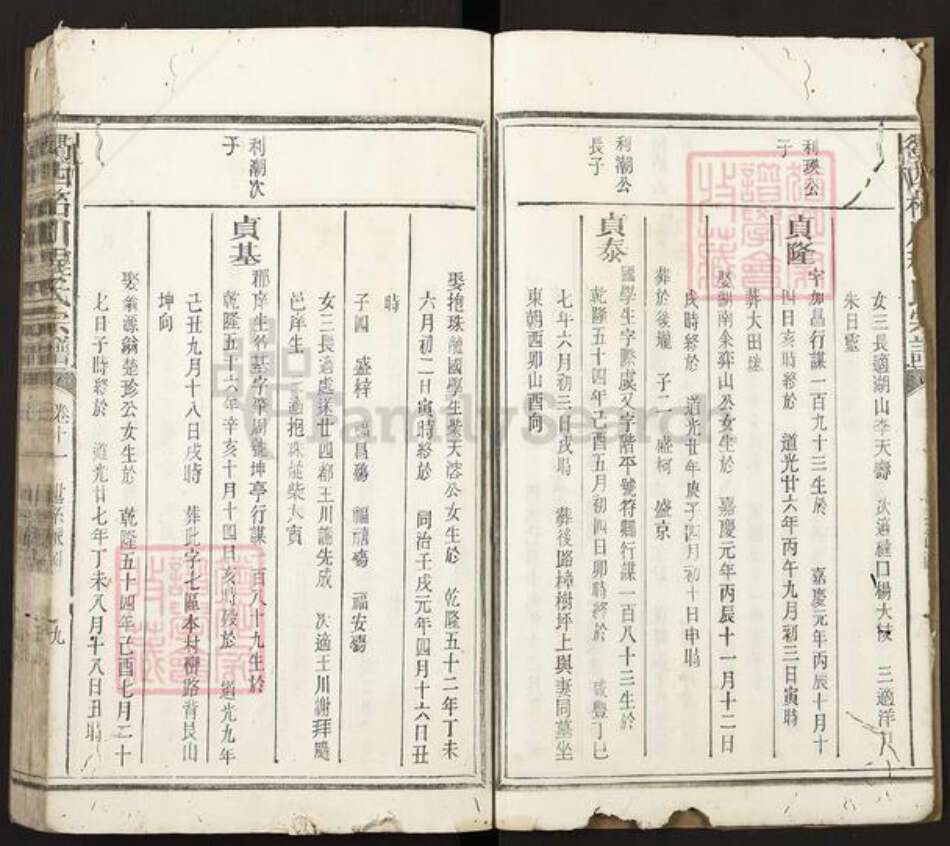 女三長適湖山李天壽 次適 口楊大 三適洋口
朱日靈
利瑛公
子
貞隆
字加昌行謀一百九十三生於 嘉慶元年丙辰十月十
四日亥時終於 道光廿六年丙午九月初三日寅時
葬大田
娶 南余弈山公女生於 嘉慶元年丙辰十一月十二日
戌時終於 道光廿年庚子四月初十日申時
葬於後壠 子二 盛柯 盛京
利潮公
長子
貞泰
國學生字際虞又字階平號符 行謀一百八十三生於
乾隆五十四年己酉五月初四日卯時終於 咸豐丁巳
七年六月初三日戌時 葬後路樟樹坪上與妻同墓坐
東朝西卯山酉向
娶抱珠 國學生柴天 公女生於 乾隆五十二年丁未
六月初二日寅時終於 同治壬戌元年四月十六日丑
時
子四 盛梓 福昌殤 福 殤 福安殤
女三長適處 廿四都王川 先成 次適王川謝拜颺
邑庠生 三適抱珠 柴大寅
利潮次
子
貞基
郡庠生名基字肇周號坤亭行謀一百八十九生於
乾隆五十六年辛亥十月十四日亥時歿於 道光九年
己丑九月十八日戌時 葬此字七區本村 路背艮山
坤向
娶翁源翁楚珍公女生於 乾隆五十四年己酉七月二十
七日子時終於 道光廿七年丁未八月十八日丑時
卷十一
九